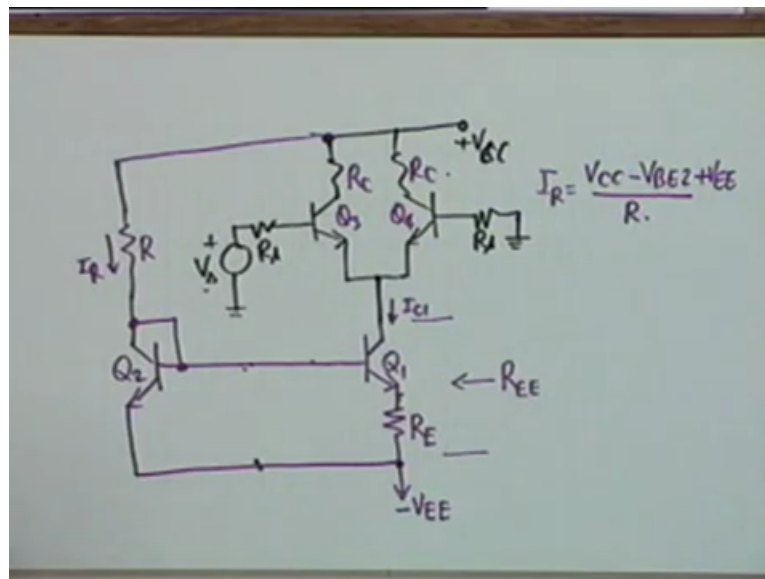 +VCC
RC
RC.
IR = VCC - VBE2 + VEE
R.
Q3
Q4
IR
R
Vs
+
-
Rs
Rs
IC1
Q2
Q1
REE
RE
-VEE